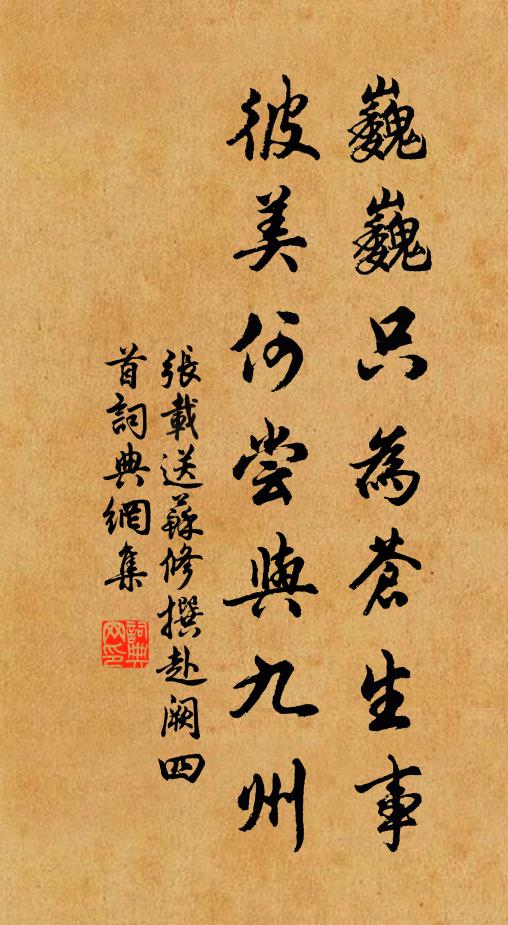 巍巍只為蒼生事
彼美何嘗與九州
張載送蘇修撰赴闕四
首詞典網集
詞典
网印